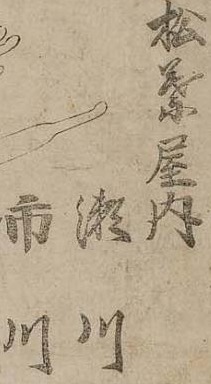 松葉屋内
瀬川
市川